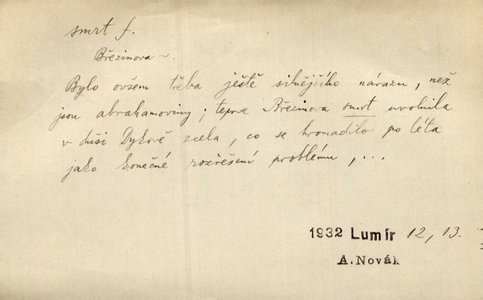 smrt f.
Březinova –
Bylo ovšem třeba ještě silnějšího nárazu, než
jsou abrahamoviny; teprve Březinova smrt uvolnila
v duši Dykově zcela, co se hromadilo po léta
jako konečné rozřešení problému, ...
1932 Lumír 12, 13.
A. Novák